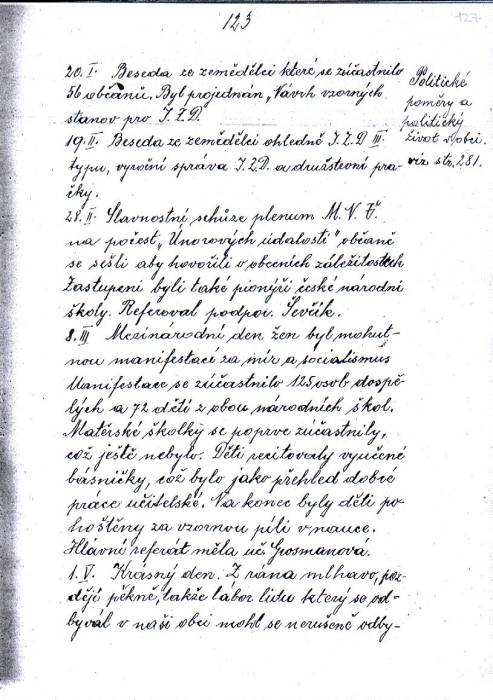 123
127
20.I. Beseda ze zemědělci které se zúčastnilo
56 občanů. Byl projednán „Návrh vzorných
stanov pro J.Z.D.
19.II. Beseda ze zemědělci ohledně J.Z.D III.
typu, výroční správa J.Z.D. a družstevní pra-
čky.
28.II. Slavnostní schůze plenum M.N.V.
na počest „Únorových událostí" občané
se sešli aby hovořili o obecních záležitostech
Zastupeni byli také pionýři české národní
školy. Referoval podpor. Ševčík.
8.III Mezinárodní den žen byl mohut-
nou manifestací za mír a socialismus
Manifestace se zúčastnilo 125 osob dospě-
lých a 72 dětí z obou národních škol.
Mateřské školky se poprve zúčastnily,
což ještě nebylo. Děti recitovaly vyučené
básničky, což bylo jako přehled dobré
práce učitelské. Na konec byly děti po-
hoštěny za vzornou píli v nauce.
Hlavní referát měla uč. Grosmanová.
1.V. Krásný den. Z rána mlhavo, poz-
ději pěkně, takže tábor lidu který se od-
býval v naší obci mohl se nerušeně odby-
Politické
poměry a
politický
život v obci.
viz str. 281.